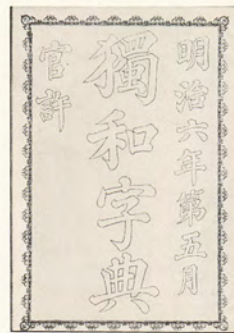 明治六年第五月
獨和字典
官許